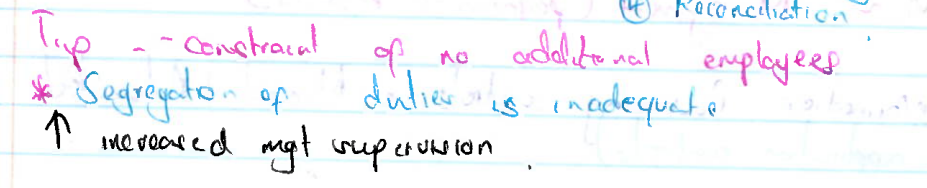 ④ Reconciliation
Tip -- constraint of no additional employees
* Segregation of duties is inadequate
↑ increased mgt supervision.